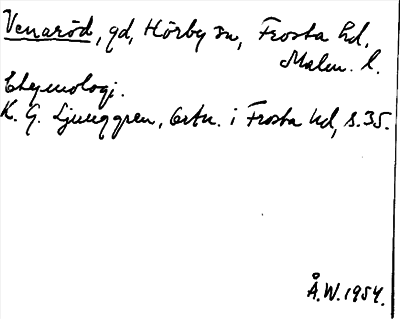 Venaröd, gd, Hörby sn, Frosta hd,
Malm. l.
Etymologi.
K. G. Ljunggren, Ortn. i Frosta hd, s.35.
Å.W.1954.